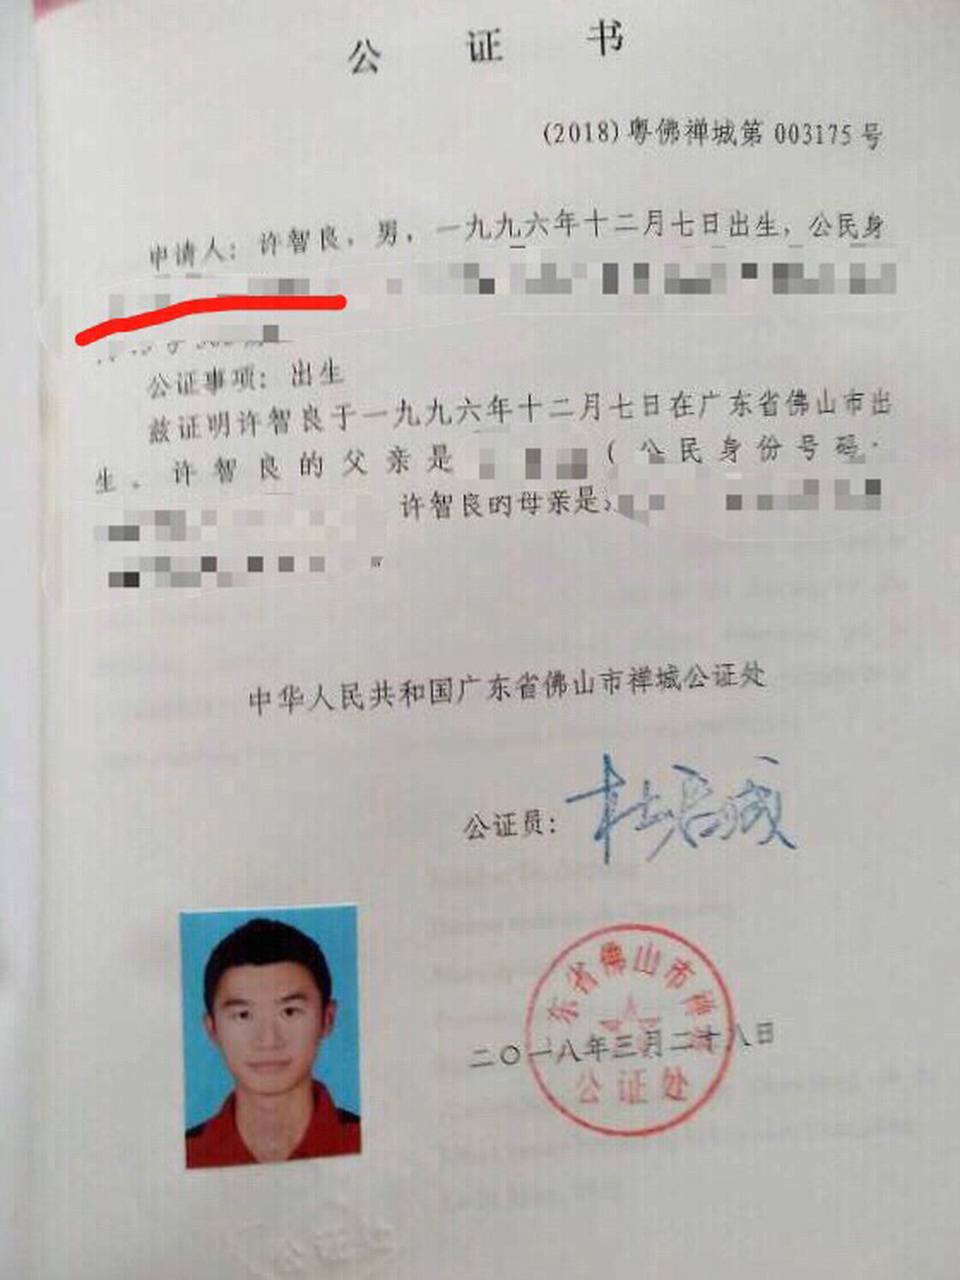 公证书
(2018)粤佛禅城第003175号
申请人：许智良，男，一九九六年十二月七日出生，公民身
公证事项：出生
兹证明许智良于一九九六年十二月七日在广东省佛山市出
生。许智良的父亲是 (公民身份号码
许智良的母亲是
中华人民共和国广东省佛山市禅城公证处
公证员：
东省佛山市禅
公证处
二〇一八年三月二十八日